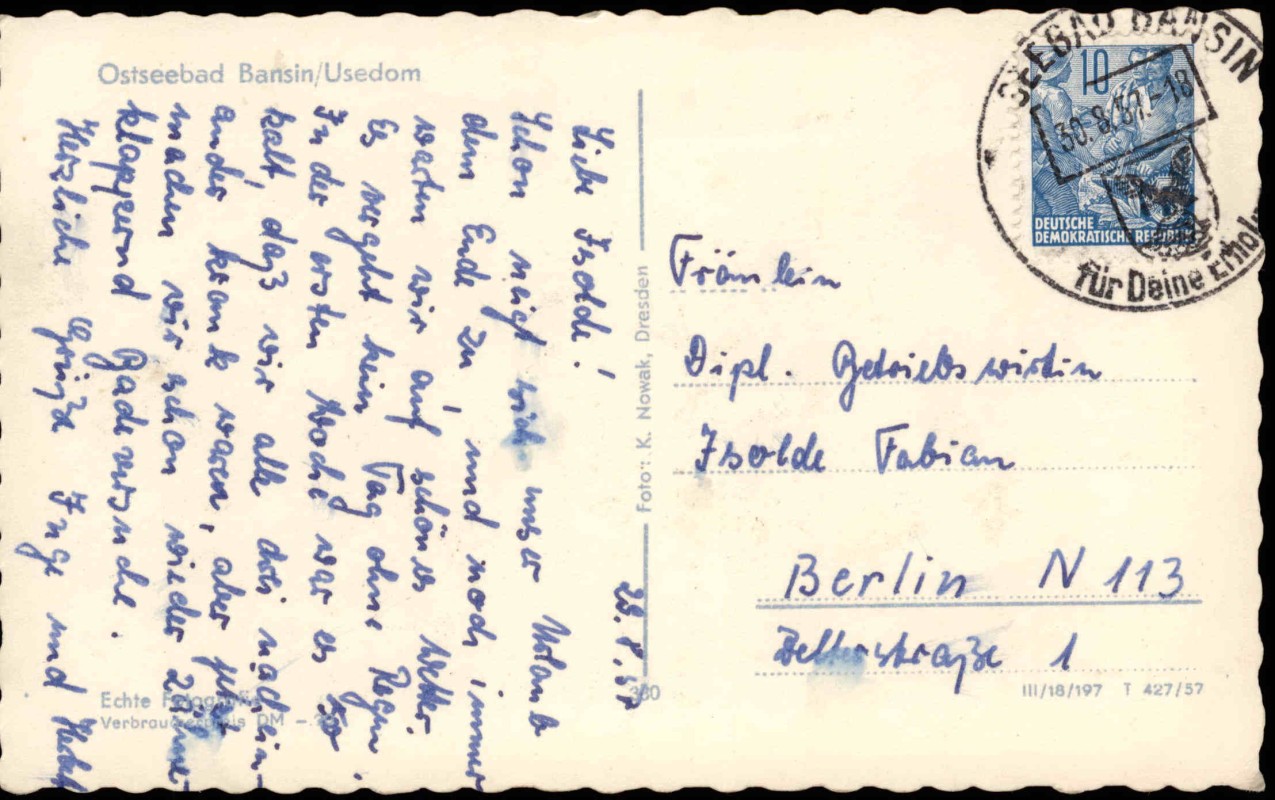 Ostseebad Bansin/Usedom
28.8.57
Liebe Isolde!
Schon neigt sich unser Urlaub
dem Ende zu, und noch immer
warten wir auf schönes Wetter.
Es vergeht kein Tag ohne Regen.
In der ersten Woche war es so
kalt, daß wir alle drei nachein-
ander krank waren, aber jetzt
machen wir schon wieder Zähne-
klappernd Badeversuche.
Herzliche Grüße Inge und
Echte Fotografie
Verbraucherpreis DM -.
Foto: K. Nowak, Dresden
380
SEEBAD BANSIN
30.8.57.-18
für Deine Erhol
10
DEUTSCHE
DEMOKRATISCHE REPUBLIK
Fräulein
Dipl. Betriebswirtin
Isolde Fabian
Berlin N 113
1
III/18/197 T 427/57